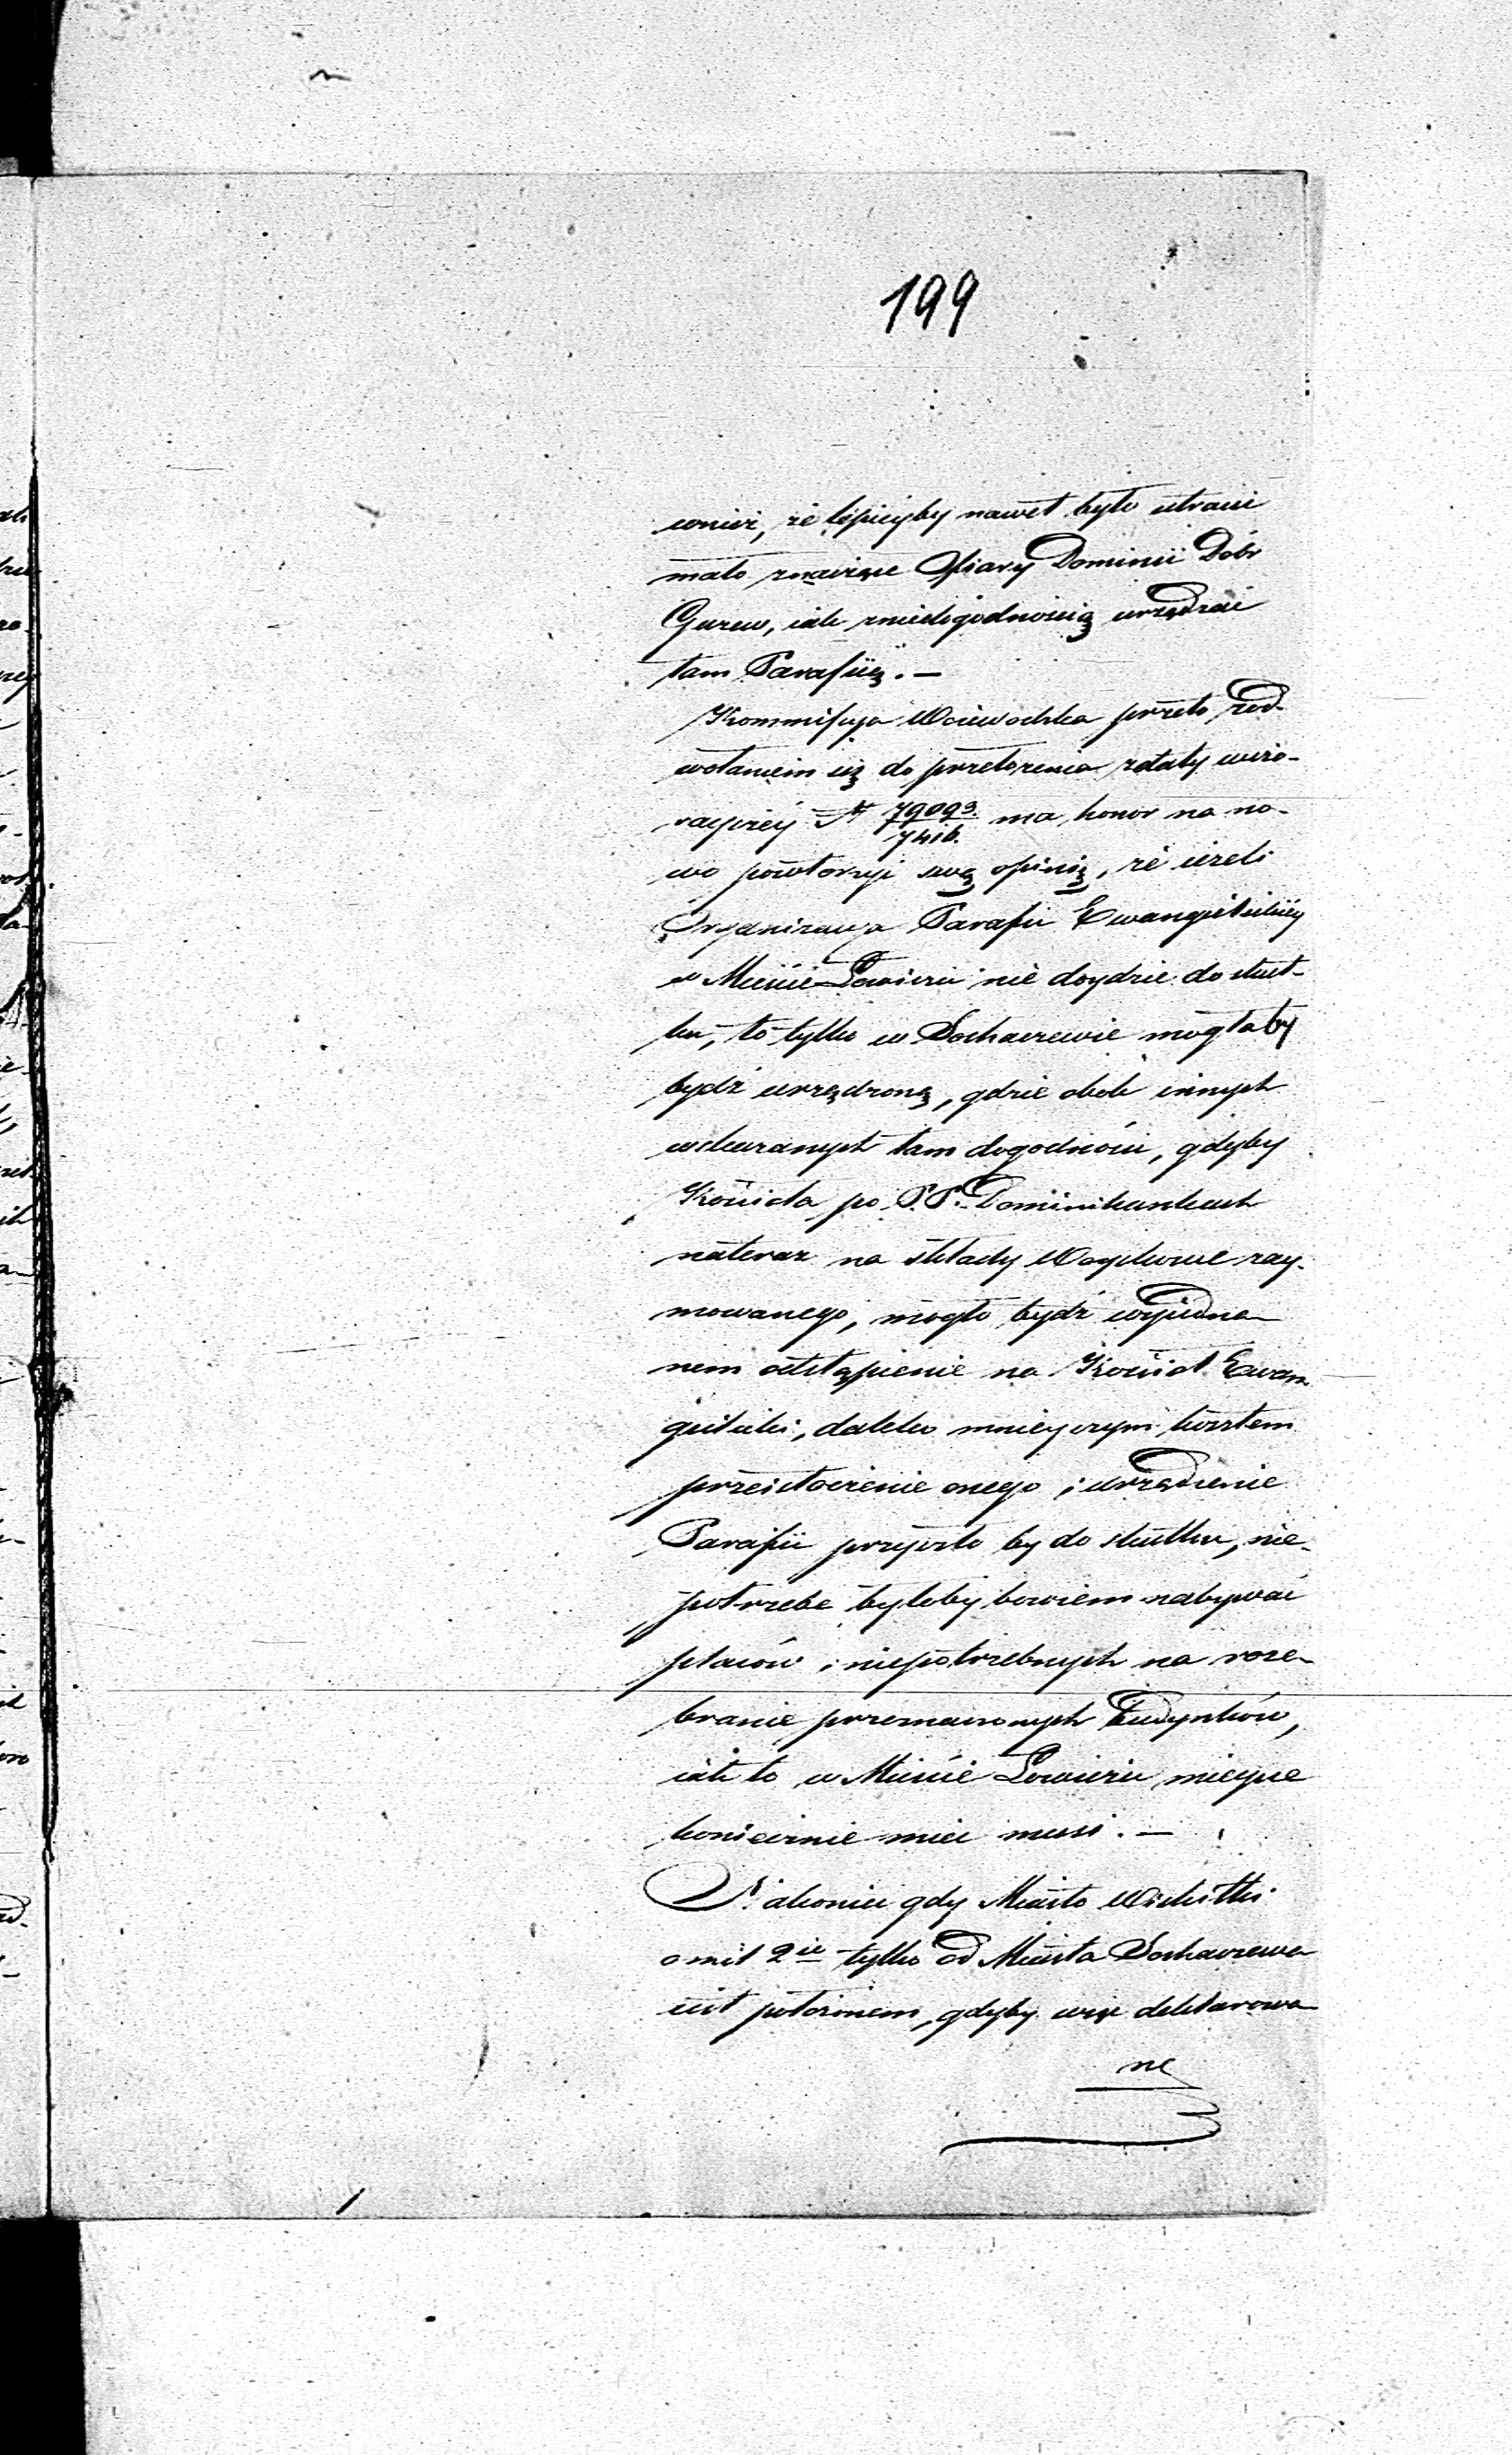 199
wnież, że lepieyby nawet było utracić
mało znaczące Ofiary Dominii Dóbr
Guzew, iak zniedogodnością urządzać
tam Parafiię. —
Kommissya Woiewodzka przeto z od-
wołaniem się do przełożenia z daty wczo-
rayszéy N 79093/7416. ma honor na no-
wo powtorzyć swą opinię, że ieżeli
Organizacya Parafii Ewangielickiéy
w Mieście Łowiczu nie doydzie do skut-
ku, to tylko w Sochaczewie mogłaby
bydź urządzoną, gdzie obok innych
wskazanych tam dogodności, gdyby
Kościoła po P.P. Dominikankach
nateraz na składy Woyskowe zay-
mowanego, mogło bydź wyiedna-
nem odstąpienie na Kościoł Ewan
gielicki, daleko mnieyszym kosztem
przeistoczenie onego i urządzenie
Parafii przyszło by do skutku, nie-
potrzeba byłoby bowiem nabywać
placów i niepotrzebnych na roze-
branie przeznaczonych budynków,
iak to w Mieście Łowiczu mieysce
koniecznie mieć musi. —
Nakoniec gdy Miasto Wiskitki
o mil 2ie tylko od Miasta Sochaczewa
iest położonem, gdyby więc deklarowa
ne